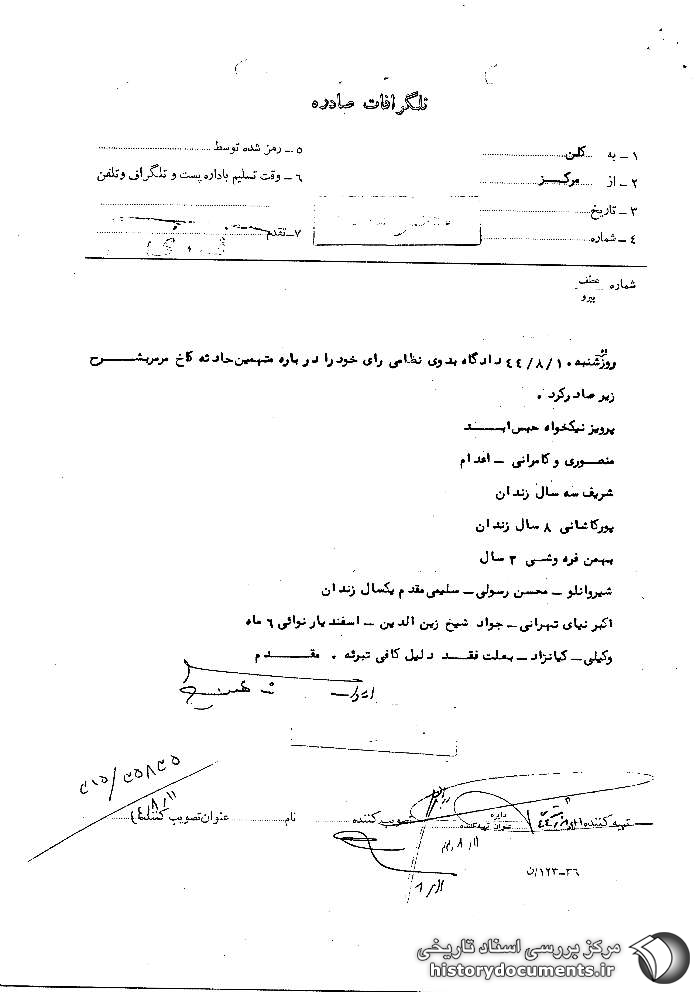 تلگرافات صادره
۱ – به کلن
۲ – از مرکز
۳ – تاریخ
۴ – شماره
۵ – رمز شده توسط
۶ – وقت تسلیم باداره پست و تلگراف و تلفن
۷ – تقدم
شماره عطف پیرو
روز شنبه ۴۴/۸/۱۰ دادگاه بدوی نظامی رای خود را در باره متهمین حادثه کاخ مرمر بشرح
زیر صادر کرد .
پرویز نیکخواه حبس ابد
منصوری و کامرانی – اعدام
شریف سه سال زندان
پورکاشانی ۸ سال زندان
بهمن فره وشی ۳ سال
شیروانلو – محسن رسولی – سلیمی مقدم یکسال زندان
اکبر نیای تهرانی – جواد شیخ زین الدین – اسفندیار نوائی ۶ ماه
وکیلی – کیانزاد – بعلت فقد دلیل کافی تبرئه . مقدم
تهیه کننده عنوان تهیه کننده تصویب کننده نام عنوان تصویب کننده
۴۴/۸/۱۱
۱۱/۸
۳۶–۱۲۳/ن
مرکز بررسی اسناد تاریخی
historydocuments.ir